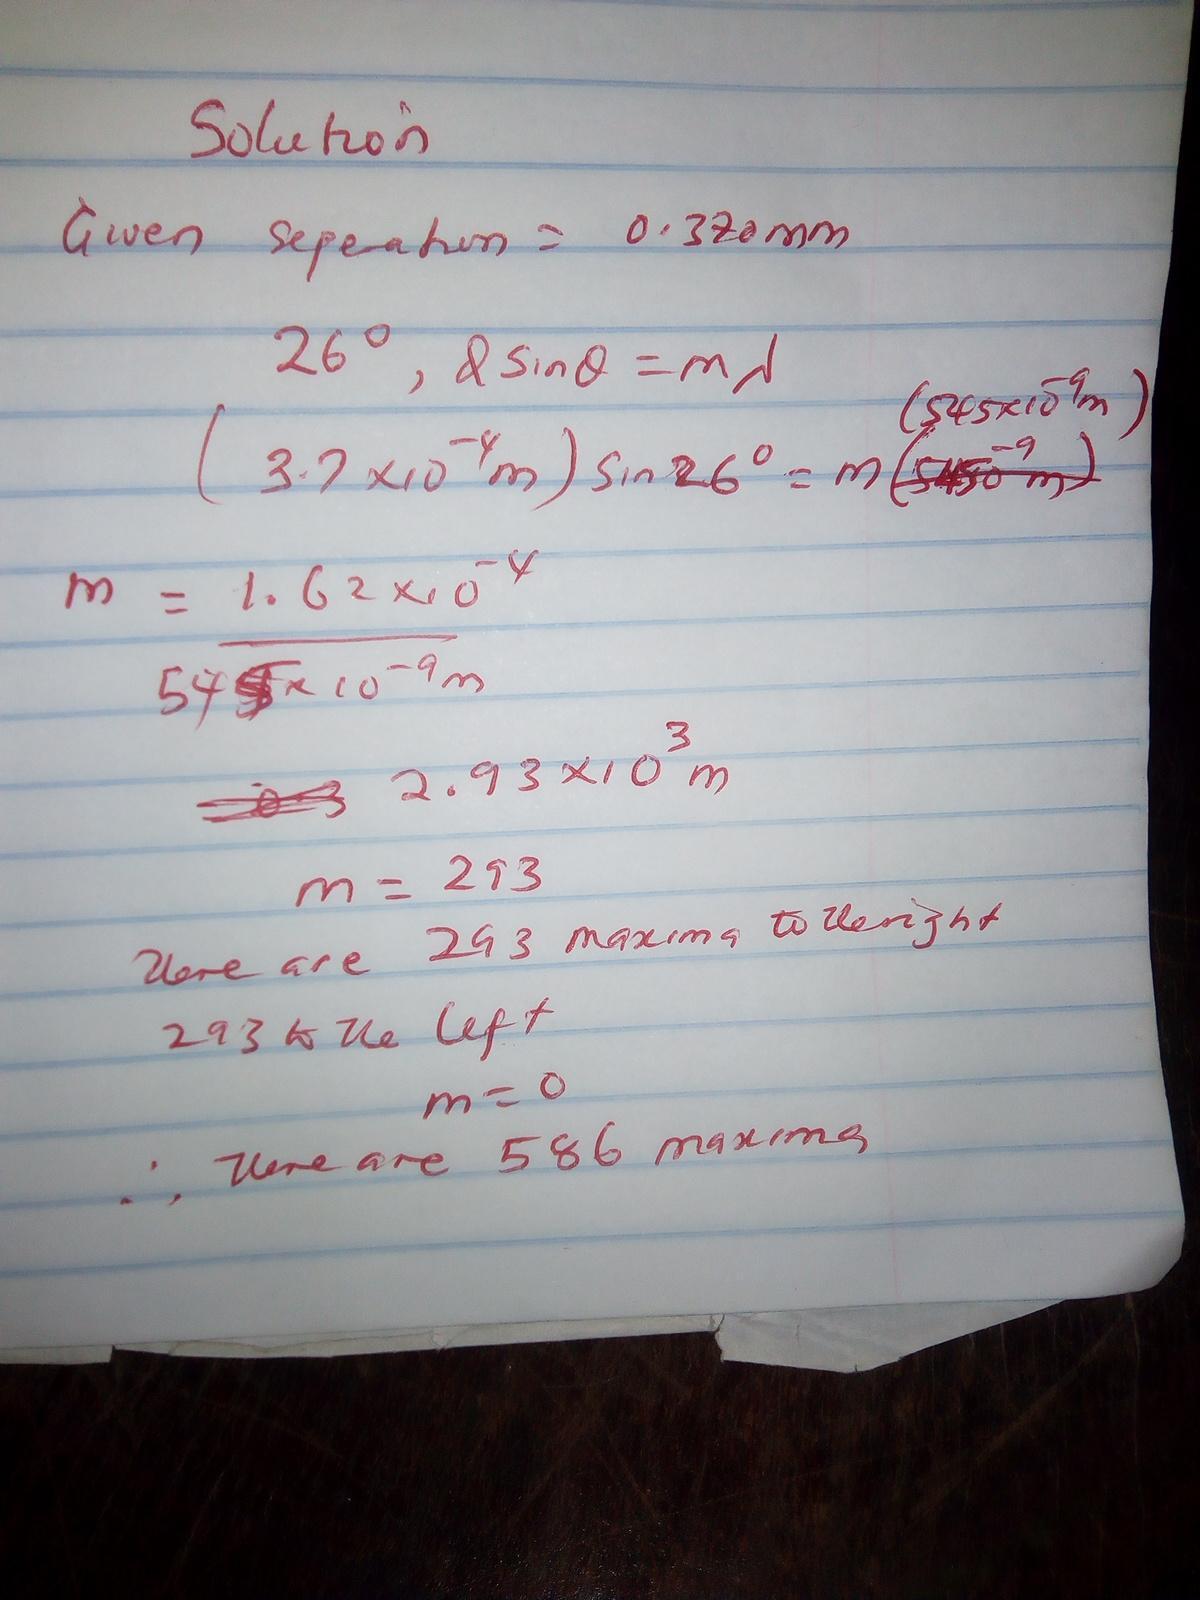 Solution
Given seperation = 0.370mm
26°, d sinθ = mλ
(3.7 x10⁻⁴m) sin26° = m (545x10⁻⁹m)
m = 1.62 x10⁻⁴
545x10⁻⁹m
2.93 x10³m
m = 293
there are 293 maxima to the right
293 to the left
m = 0
∴ there are 586 maxima